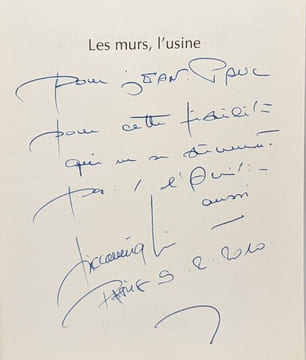 Les murs, l'usine
Pour JEAN. PAUL
pour cette fidélité
qui ne se dément
pas ! l'Amitié
aussi
Paris 9. 2. 2010